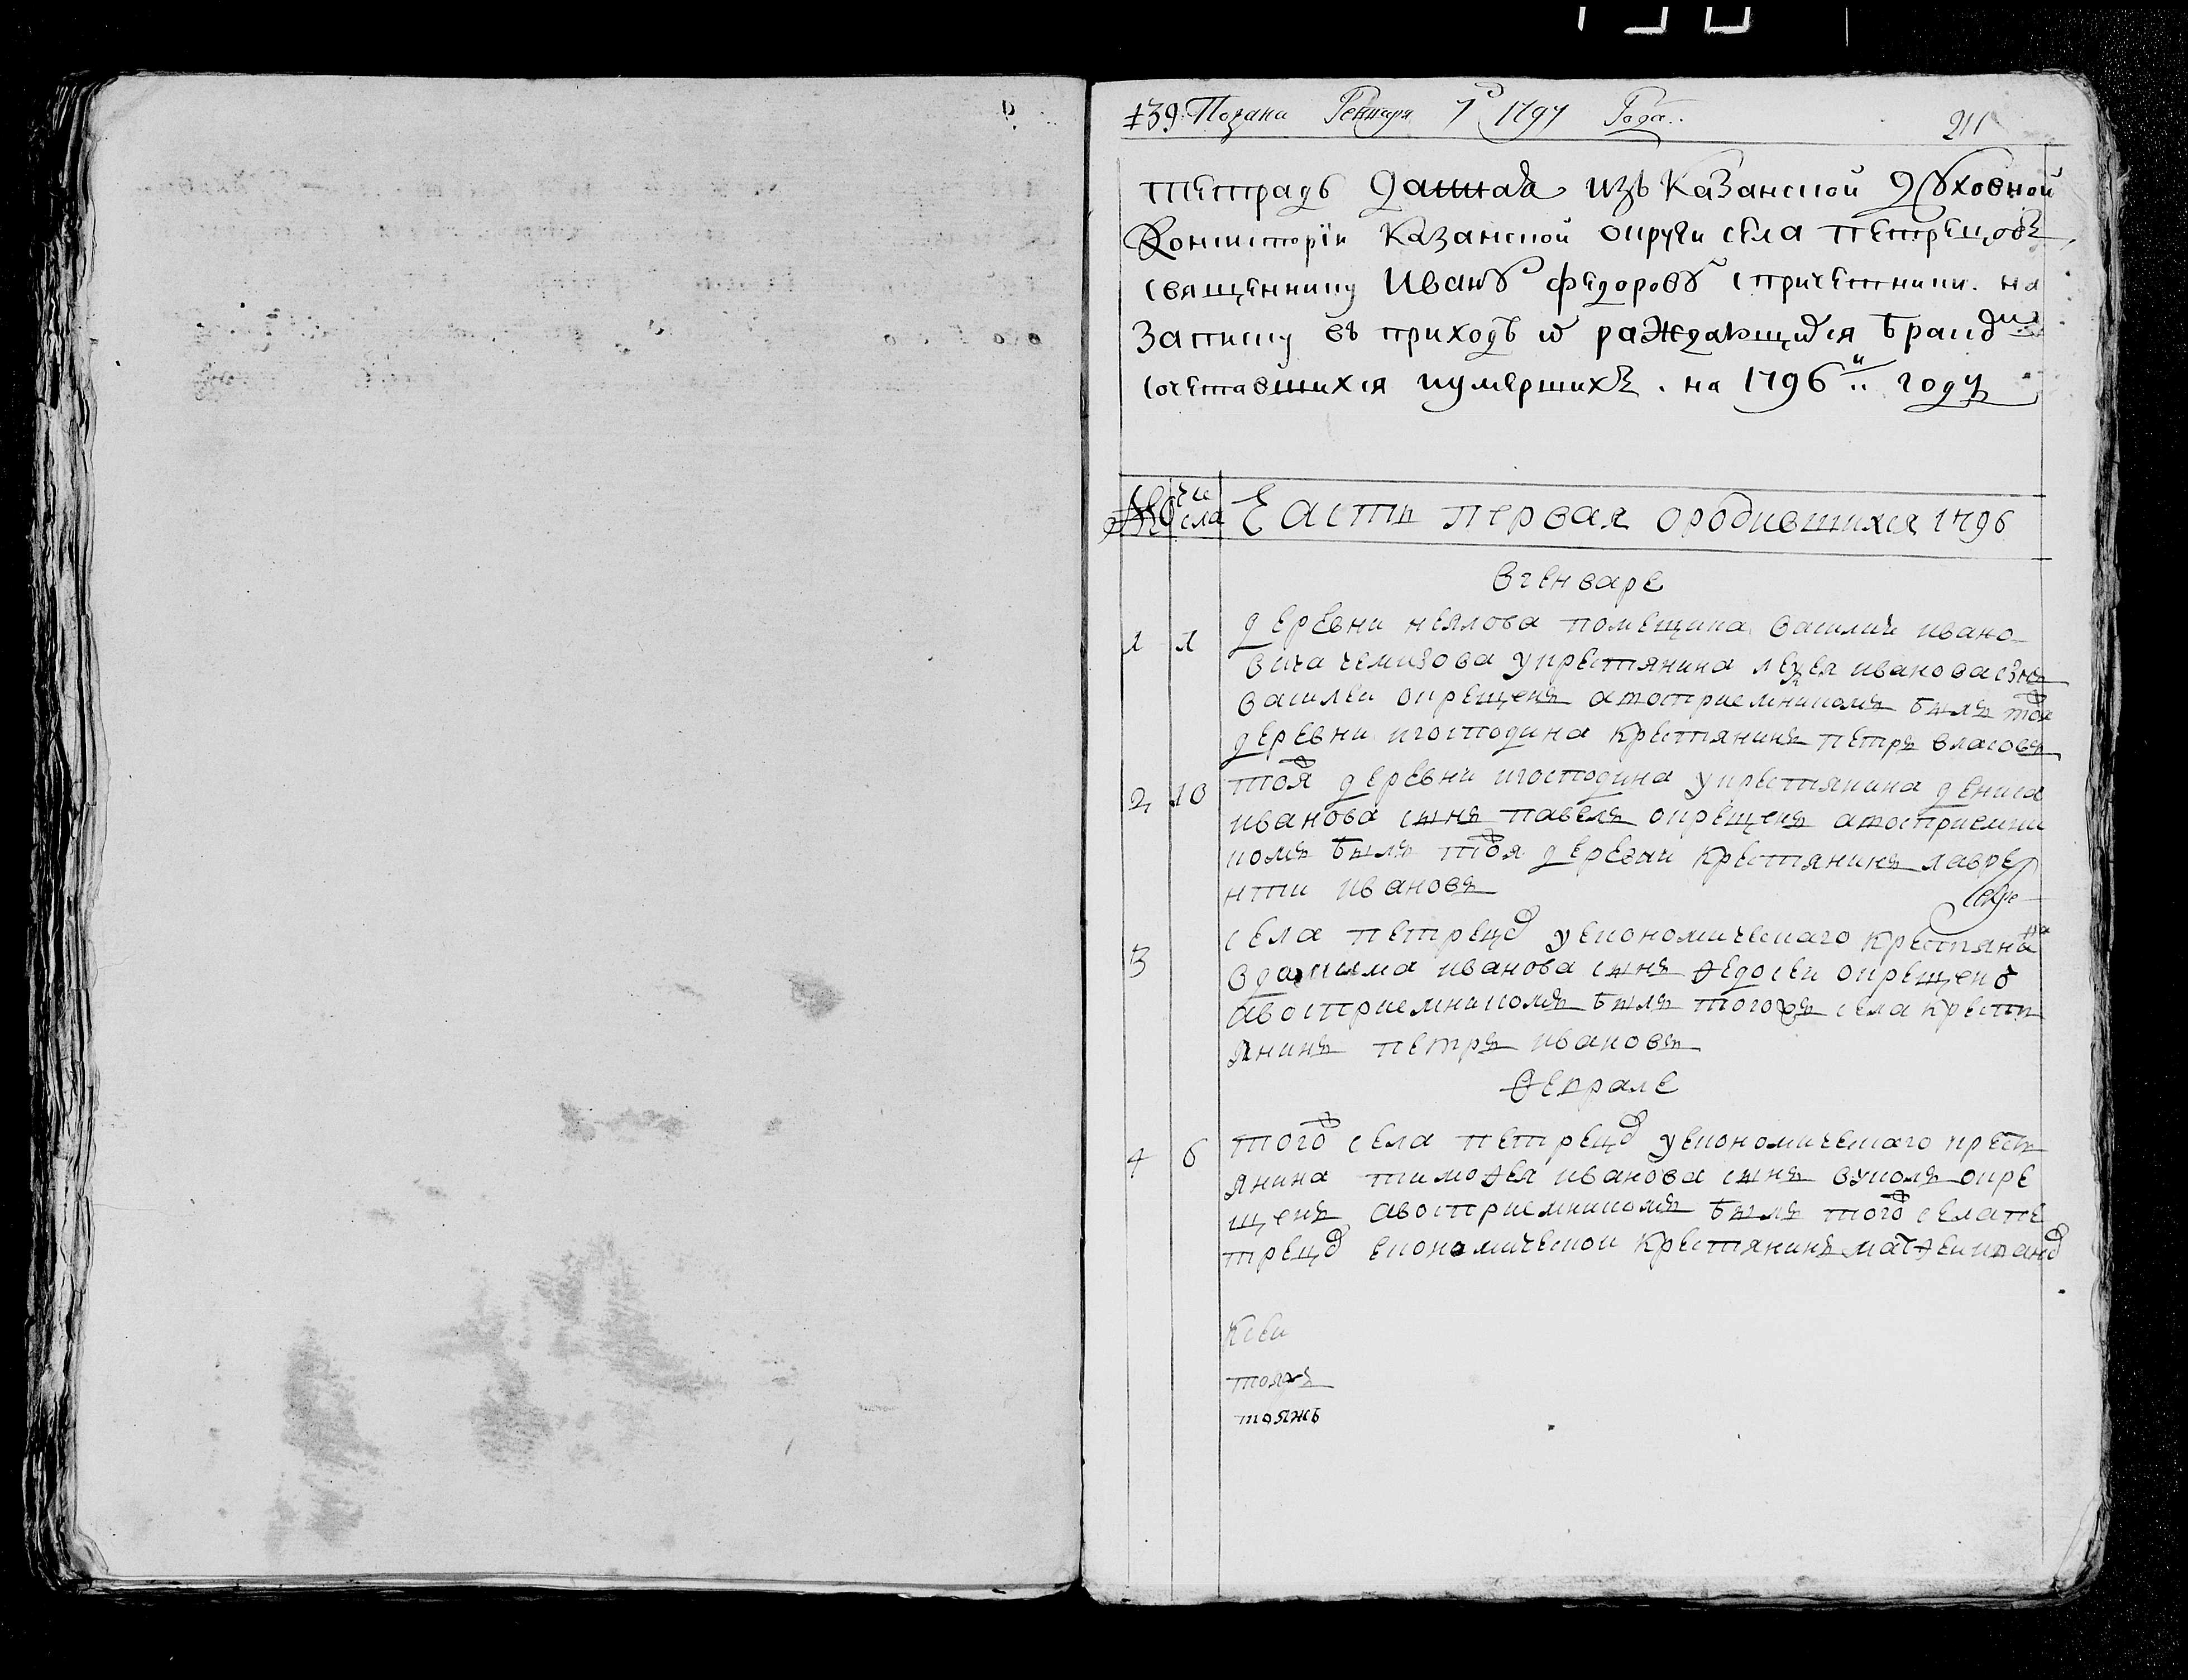 139. Подана Генваря 7 1797 Года..
211
тетрадь данная изъ Казанской Духовной
Консисторіи Казанской округи села Петрецовъ
священнику Ивану Федорову спричетники. на
записку въ приходѣ раждающихся бракомъ
сочетавшихся иумершихъ. на 1796й годъ
№ числа Часть первая ородившихся 1796
Вгенваре
1 1 деревни неялова помещика василия ивано
вича чемизова укрестянина ивановасынъ
василеи окрещенъ авосприемникомъ былъ тояж
деревни игосподина крестянинъ петръ власовъ
2 10 тояж деревни игосподина укрестянина дениса
иванова сынъ павелъ окрещенъ авосприемни
комъ былъ тояж деревни крестянинъ лавре
нти ивановъ
3 села петрецов уекономическаго крестянина
иванова сынъ ѳедосеи окрещенъ
авосприемникомъ былъ тогожъ села крестъ
янинъ петръ ивановъ
Ѳеврале
4 6 тогож села петрецов уекономическаго крестъ
янина тимоѳея иванова сынъ вуколъ окре
щенъ авосприемникомъ былъ тогож села пе
трецов економическои крестянинъ матѳеи иванов
Ксеи
тояжъ
тояжь